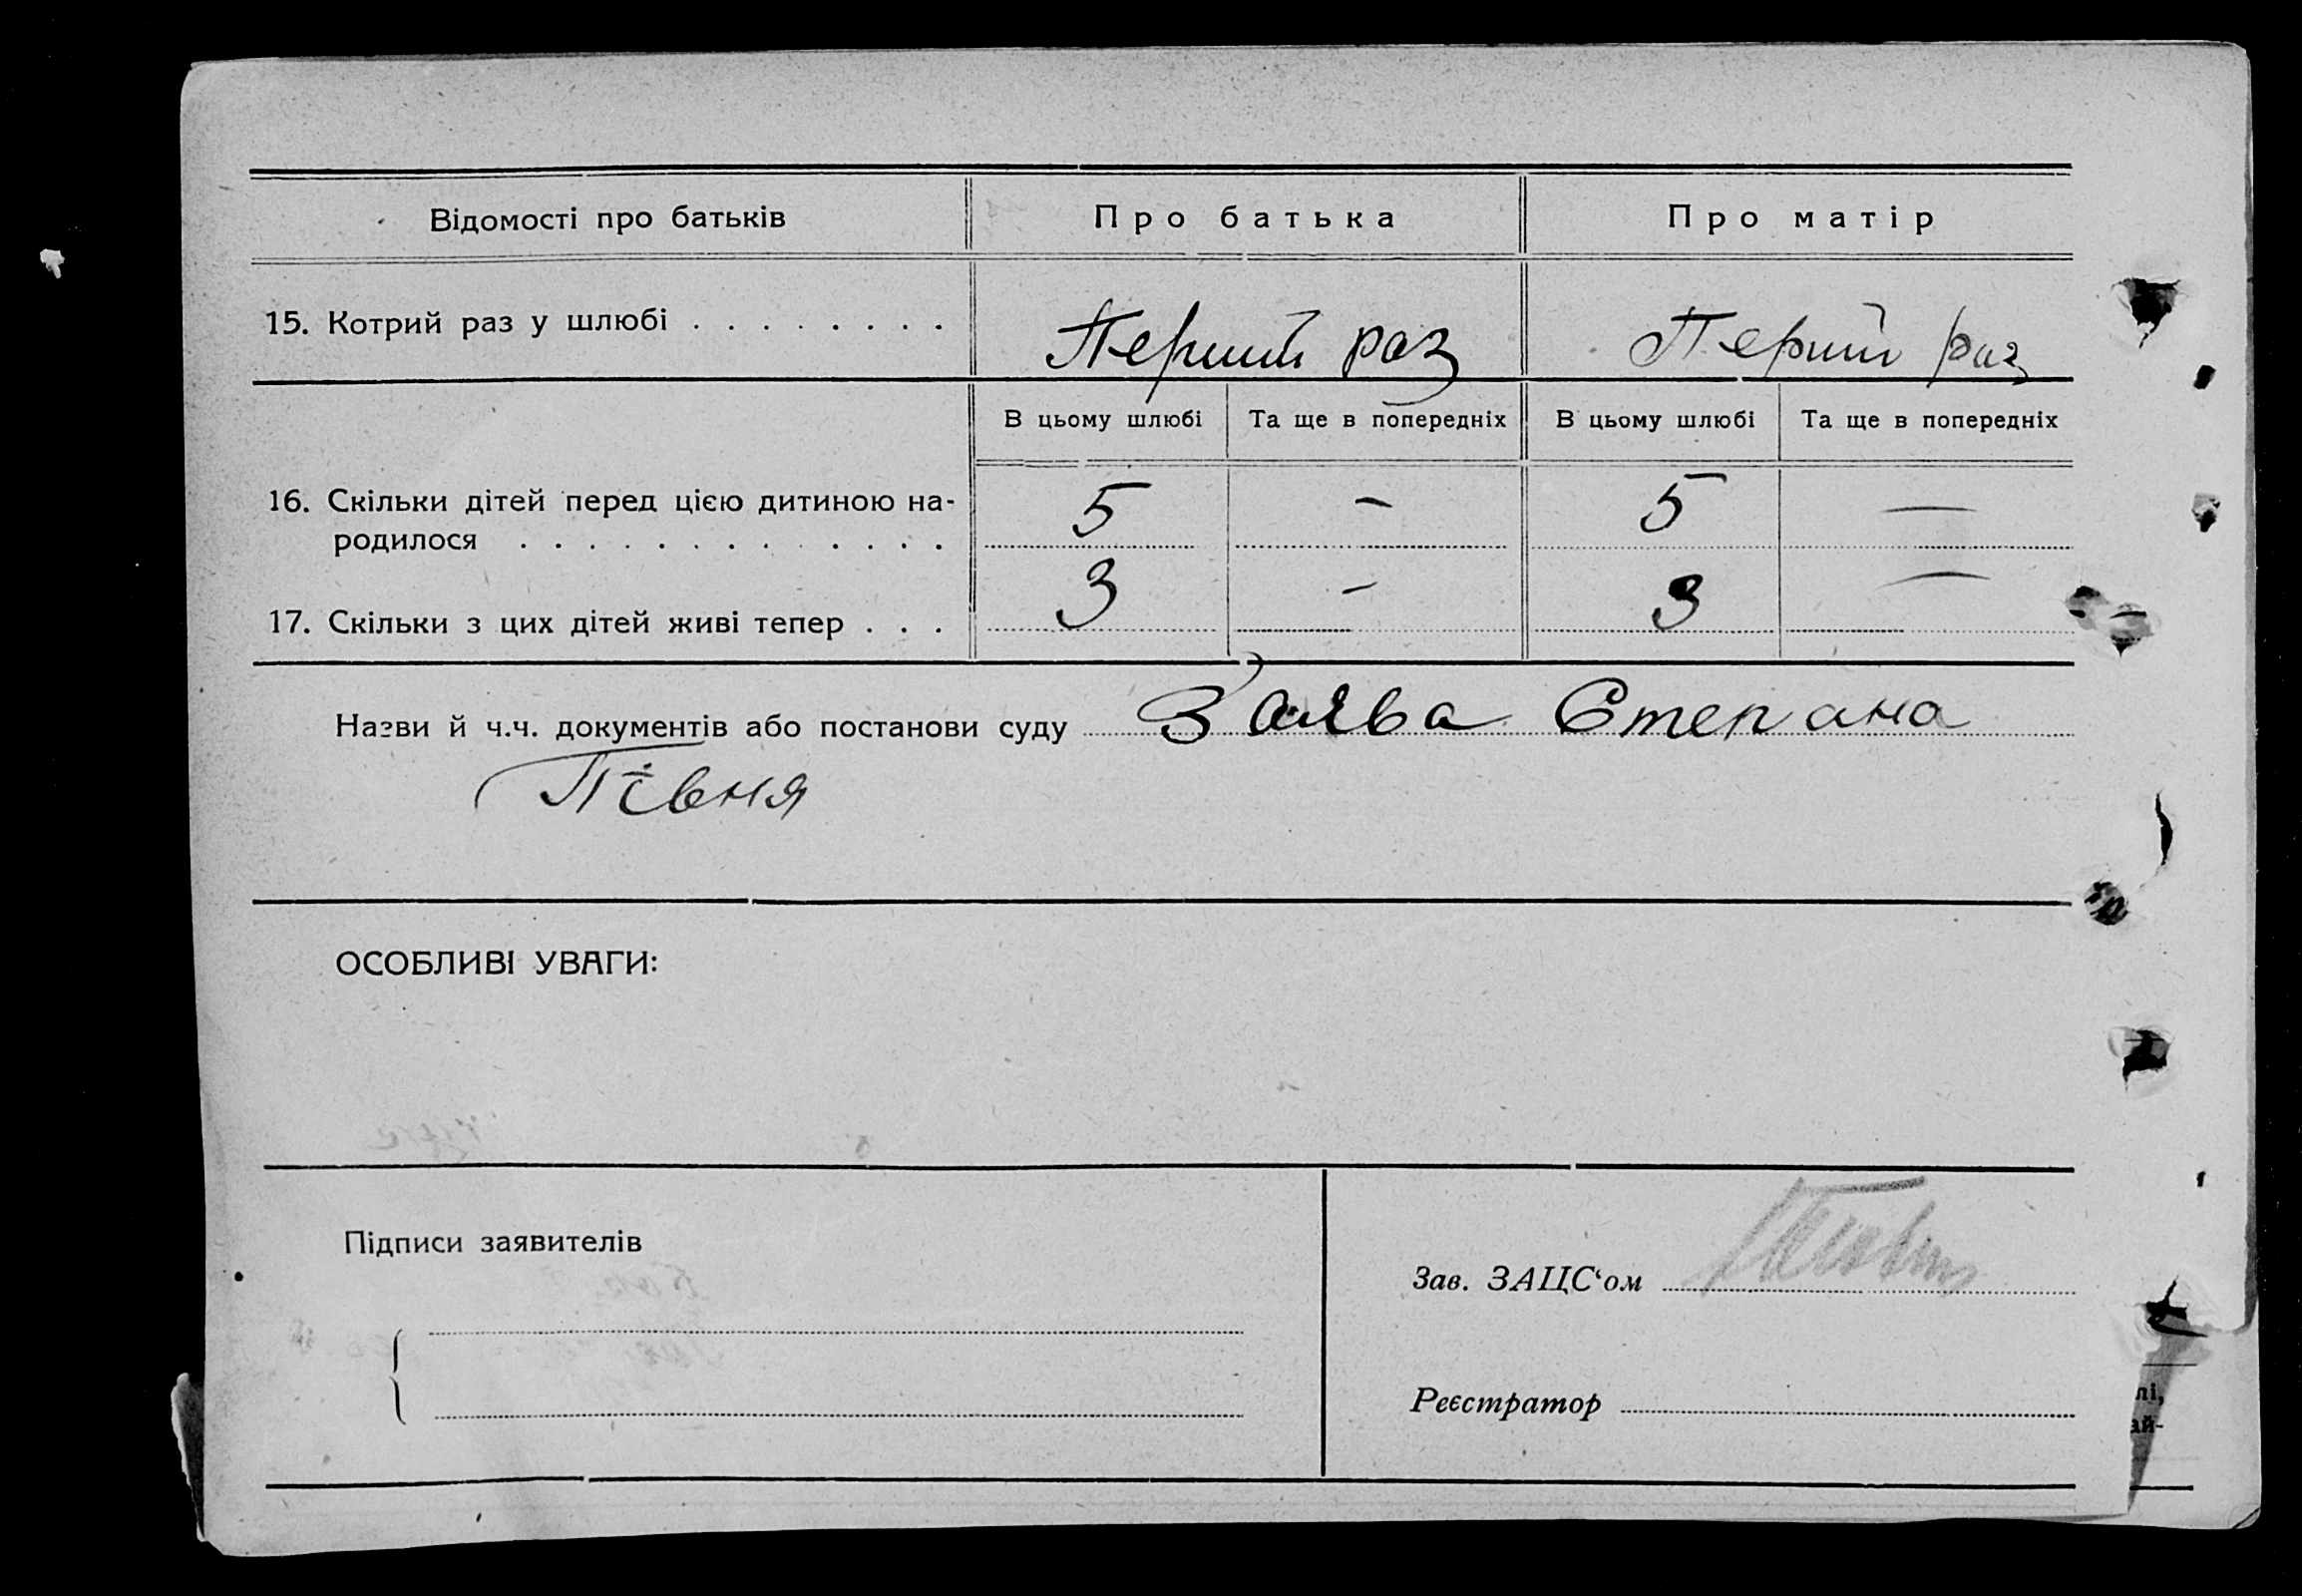 Відомості про батьків	Про батька	Про матір
15. Котрий раз у шлюбі . . . . . . . .	Перший раз	Перший раз
В цьому шлюбі	Та ще в попередніх	В цьому шлюбі	Та ще в попередніх
16. Скільки дітей перед цією дитиною на-
родилося . . . . . . . . . . . . .	5	—	5	—
17. Скільки з цих дітей живі тепер . . .	3	—	3	—
Назви й ч.ч. документів або постанови суду Заява Степана
Півня
ОСОБЛИВІ УВАГИ:
Підписи заявителів
Зав. ЗАЦС‘ом
Реєстратор
лі,
ай-